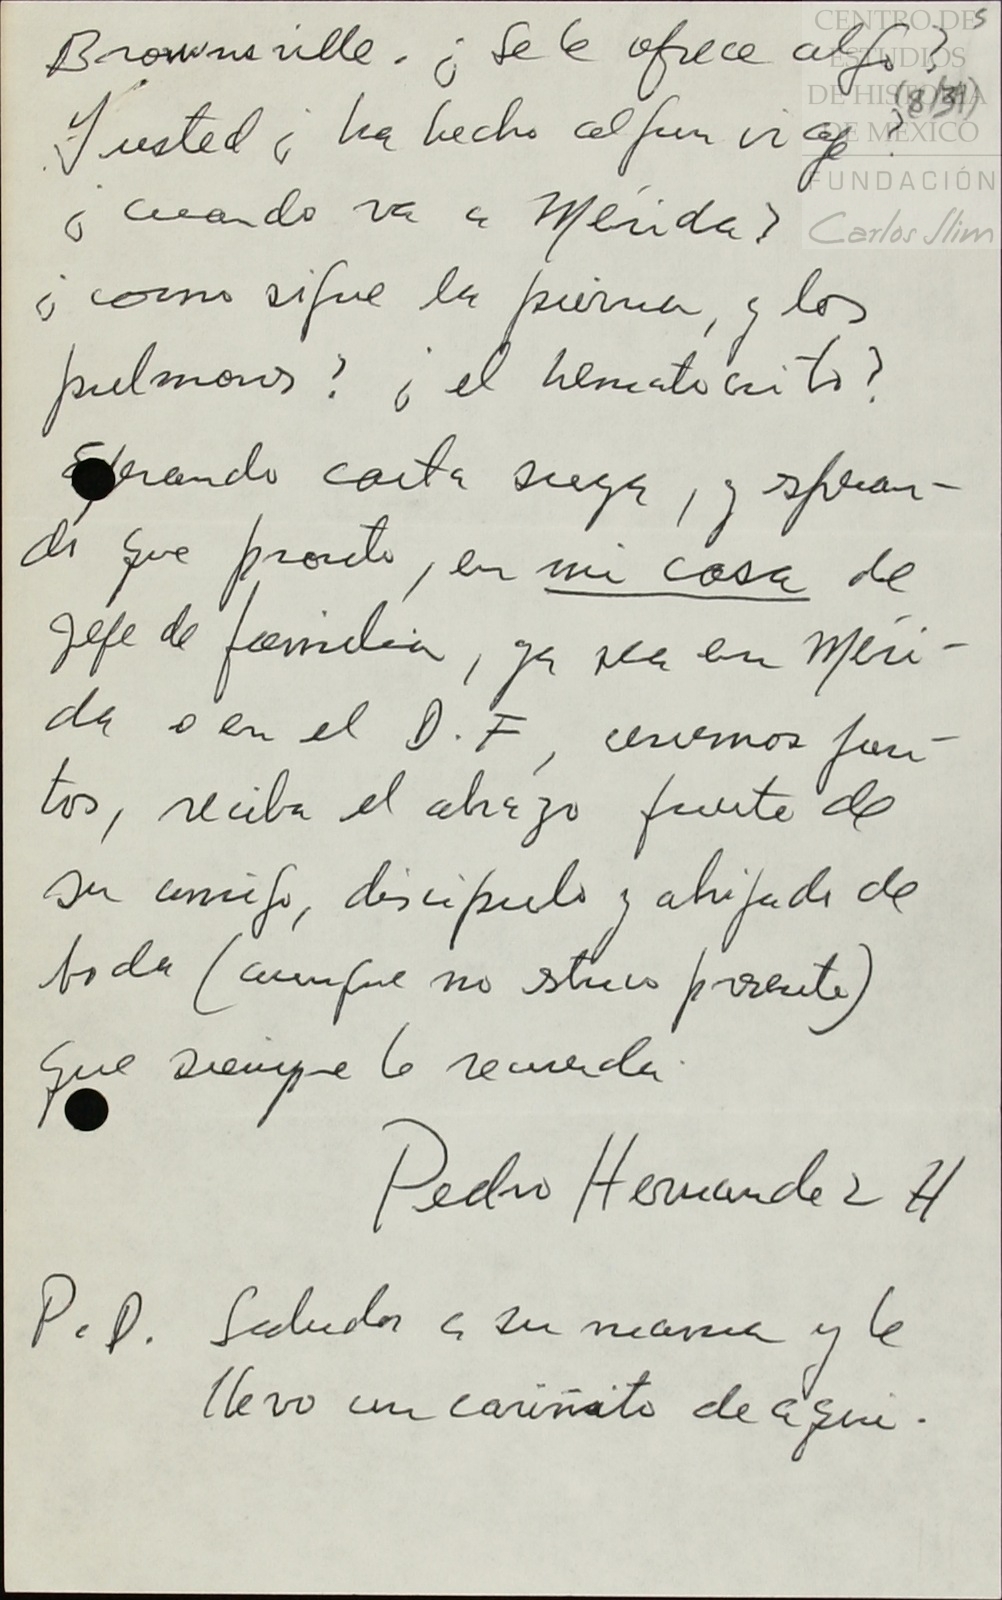 CENTRO DE
ESTUDIOS
DE HISTORIA
DE MÉXICO
FUNDACIÓN
Carlos Slim
5
(8/31)
Brownsville. ¿Se le ofrece algo?
Y usted ¿ha hecho algun viaje?
¿cuando va a Mérida?
¿como sigue la pierna, y los
pulmones? ¿el hematocrito?
Esperando carta suya, y esperan-
do que pronto, en mi casa de
jefe de familia, ya sea en Méri-
da o en el D.F, cenemos jun-
tos, reciba el abrazo fuerte de
su amigo, discipulo y ahijado de
boda (aunque no estuvo presente)
que siempre le recuerda.
Pedro Hernandez H
P.D. Saludos a su mama y le
llevo un cariñito de aqui.